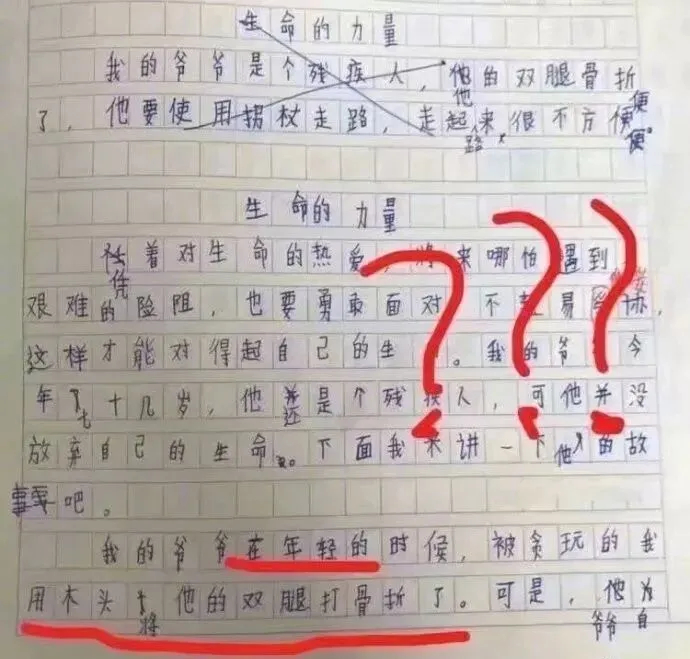 生命的力量
我的爷爷是个残疾人，他的双腿骨折
了，他要使用拐杖走路，走起来很不方便。
他 路 便 便
生命的力量
凭着对生命的热爱，将来哪怕遇到
艰难的险阻，也要勇敢面对，不轻易
这样才能对得起自己的生。我的爷今
年七十几岁，他还是个残疾人，可他并没
放弃自己的生命。下面我来讲一下他的故
事吧。
我的爷爷在年轻的时候，被贪玩的我
用木头将他的双腿打骨折了。可是，他为
爷爷自